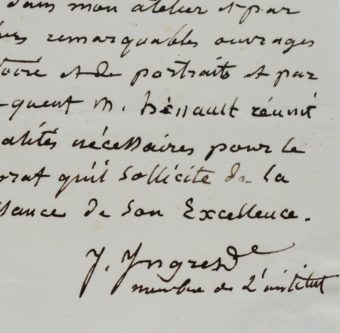 dans mon atelier et par
remarquables ouvrages
toire et de portraits et par
quent M. hénault réunit
alités nécessaires pour le
rrat qu'il sollicite de la
llance de Son Excellence.
J. Ingres
membre de L'institut